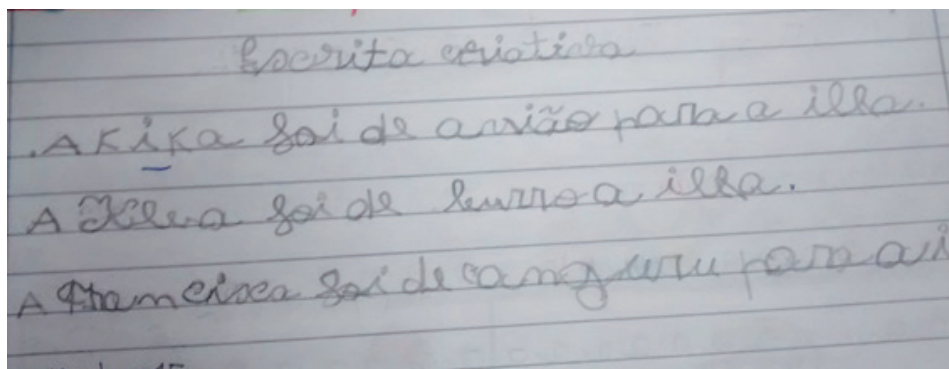 Escrita criativa
.A Kika foi de avião para a illa.
A foi de burro a illa.
A foi de canguru para a i